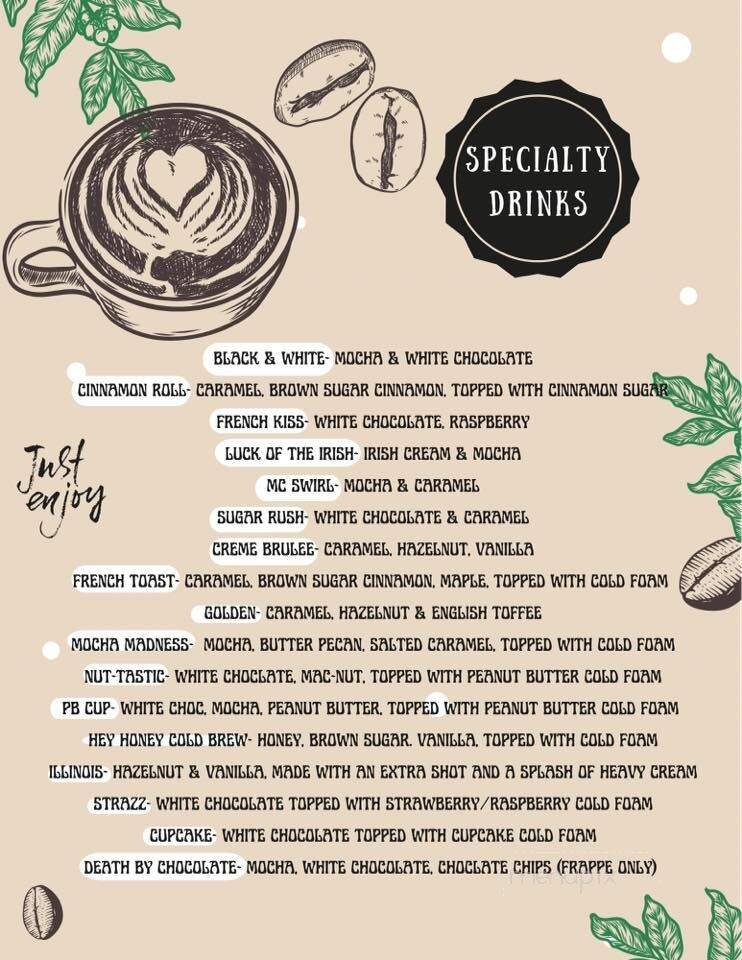 SPECIALTY
DRINKS
BLACK & WHITE- MOCHA & WHITE CHOCOLATE
CINNAMON ROLL- CARAMEL, BROWN SUGAR CINNAMON, TOPPED WITH CINNAMON SUGAR
FRENCH KISS- WHITE CHOCOLATE, RASPBERRY
LUCK OF THE IRISH- IRISH CREAM & MOCHA
MC SWIRL- MOCHA & CARAMEL
Just
enjoy
SUGAR RUSH- WHITE CHOCOLATE & CARAMEL
CREME BRULEE- CARAMEL, HAZELNUT, VANILLA
FRENCH TOAST- CARAMEL, BROWN SUGAR CINNAMON, MAPLE, TOPPED WITH COLD FOAM
GOLDEN- CARAMEL, HAZELNUT & ENGLISH TOFFEE
MOCHA MADNESS- MOCHA, BUTTER PECAN, SALTED CARAMEL, TOPPED WITH COLD FOAM
NUT-TASTIC- WHITE CHOCLATE, MAC-NUT, TOPPED WITH PEANUT BUTTER COLD FOAM
PB CUP- WHITE CHOC, MOCHA, PEANUT BUTTER, TOPPED WITH PEANUT BUTTER COLD FOAM
HEY HONEY COLD BREW- HONEY, BROWN SUGAR. VANILLA, TOPPED WITH COLD FOAM
ILLINOIS- HAZELNUT & VANILLA, MADE WITH AN EXTRA SHOT AND A SPLASH OF HEAVY CREAM
STRAZZ- WHITE CHOCOLATE TOPPED WITH STRAWBERRY/RASPBERRY COLD FOAM
CUPCAKE- WHITE CHOCOLATE TOPPED WITH CUPCAKE COLD FOAM
DEATH BY CHOCOLATE- MOCHA, WHITE CHOCOLATE, CHOCLATE CHIPS (FRAPPE ONLY)
menupix